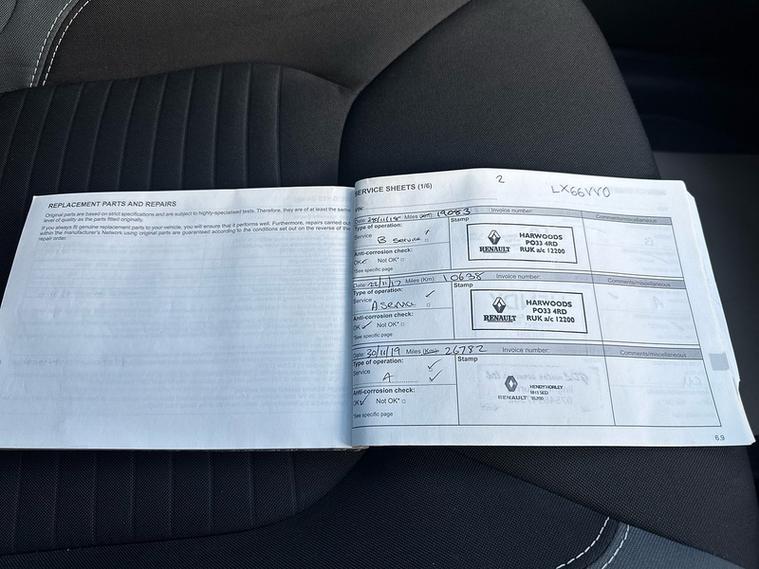 REPLACEMENT PARTS AND REPAIRS
Original parts are based on strict specifications and are subject to highly-specialised tests. Therefore, they are of at least the same
level of quality as the parts fitted originally.
If you always fit genuine replacement parts to your vehicle, you will ensure that it performs well. Furthermore, repairs carried out
within the manufacturer's Network using original parts are guaranteed according to the conditions set out on the reverse of the
repair order.
SERVICE SHEETS (1/6)
2
LX66VVO
VIN:
Date: 28/11/18 Miles (Km) 19083 Invoice number: Comments/miscellaneous
Type of operation: Stamp
Service
B Service
Anti-corrosion check:
OK Not OK*
*See specific page
RENAULT
HARWOODS
PO33 4RD
RUK a/c 12200
Date: 22/11/17 Miles (Km) 10638 Invoice number: Comments/miscellaneous
Type of operation: Stamp
Service
A Service
Anti-corrosion check:
OK Not OK*
*See specific page
RENAULT
HARWOODS
PO33 4RD
RUK a/c 12200
Date: 30/11/19 Miles (Km) 26782 Invoice number: Comments/miscellaneous
Type of operation: Stamp
Service
A
Anti-corrosion check:
OK Not OK*
*See specific page
RENAULT
6.9